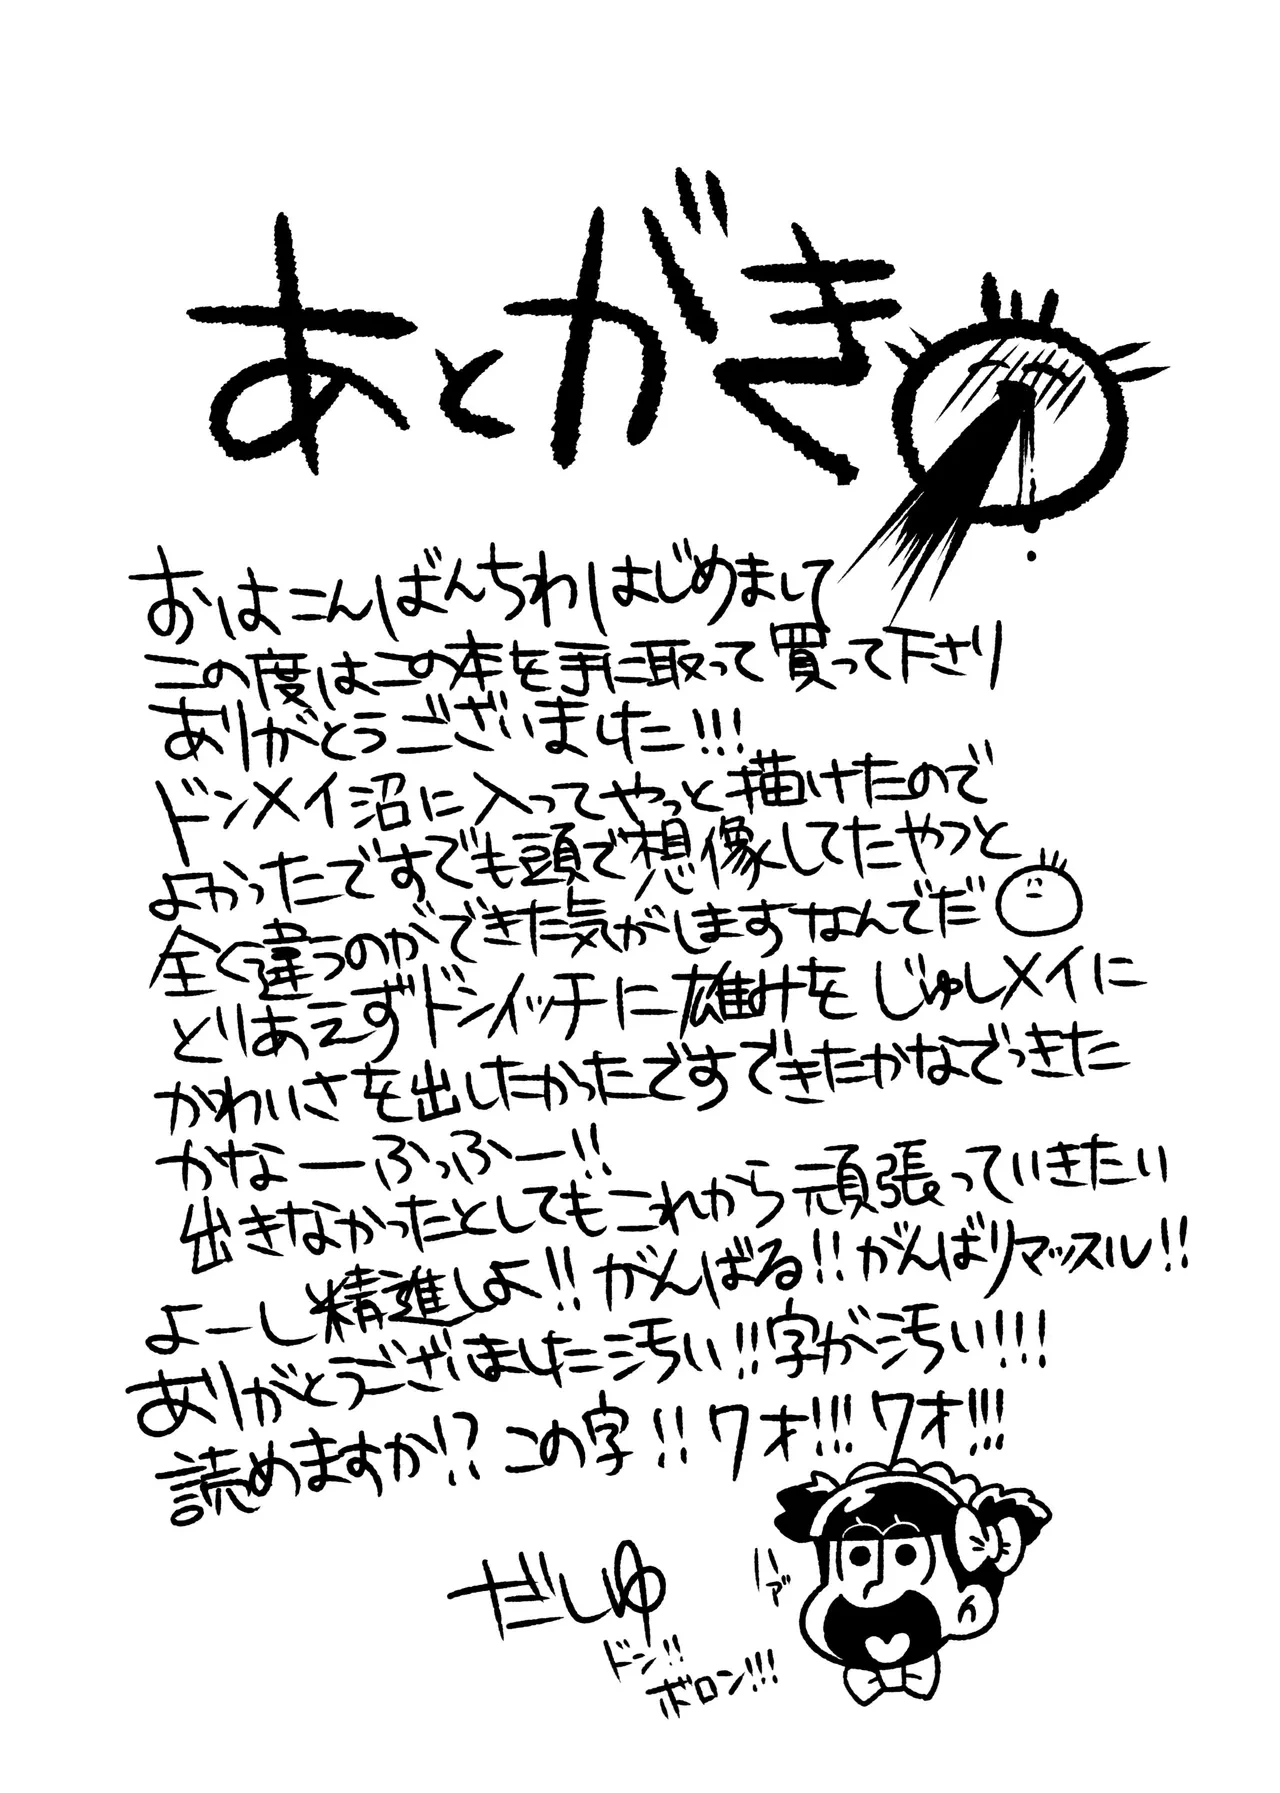 あとがき
おはこんばんちわはじめまして
この度はこの本を手に取って買って下さり
ありがとうございました!!!
ドンメイ沼に入ってやっと描けたので
よかったですでも頭で想像してたやつと
全く違うのができた気がしますなんでだ
とりあえずドンイッチに雄みを じゅしメイに
かわいさを出したかったですできたかなでっきた
かなーふっふー!!
出きなかったとしてもこれから頑張っていきたい
よーし精進しよ!! がんばる!! がんばりマッスル!!
ありがとうございました汚い!!字が汚い!!!
読めますか!? この字!! ワォ!!! ワォ!!!
だしゆ
ドン!!
ボロン!!!